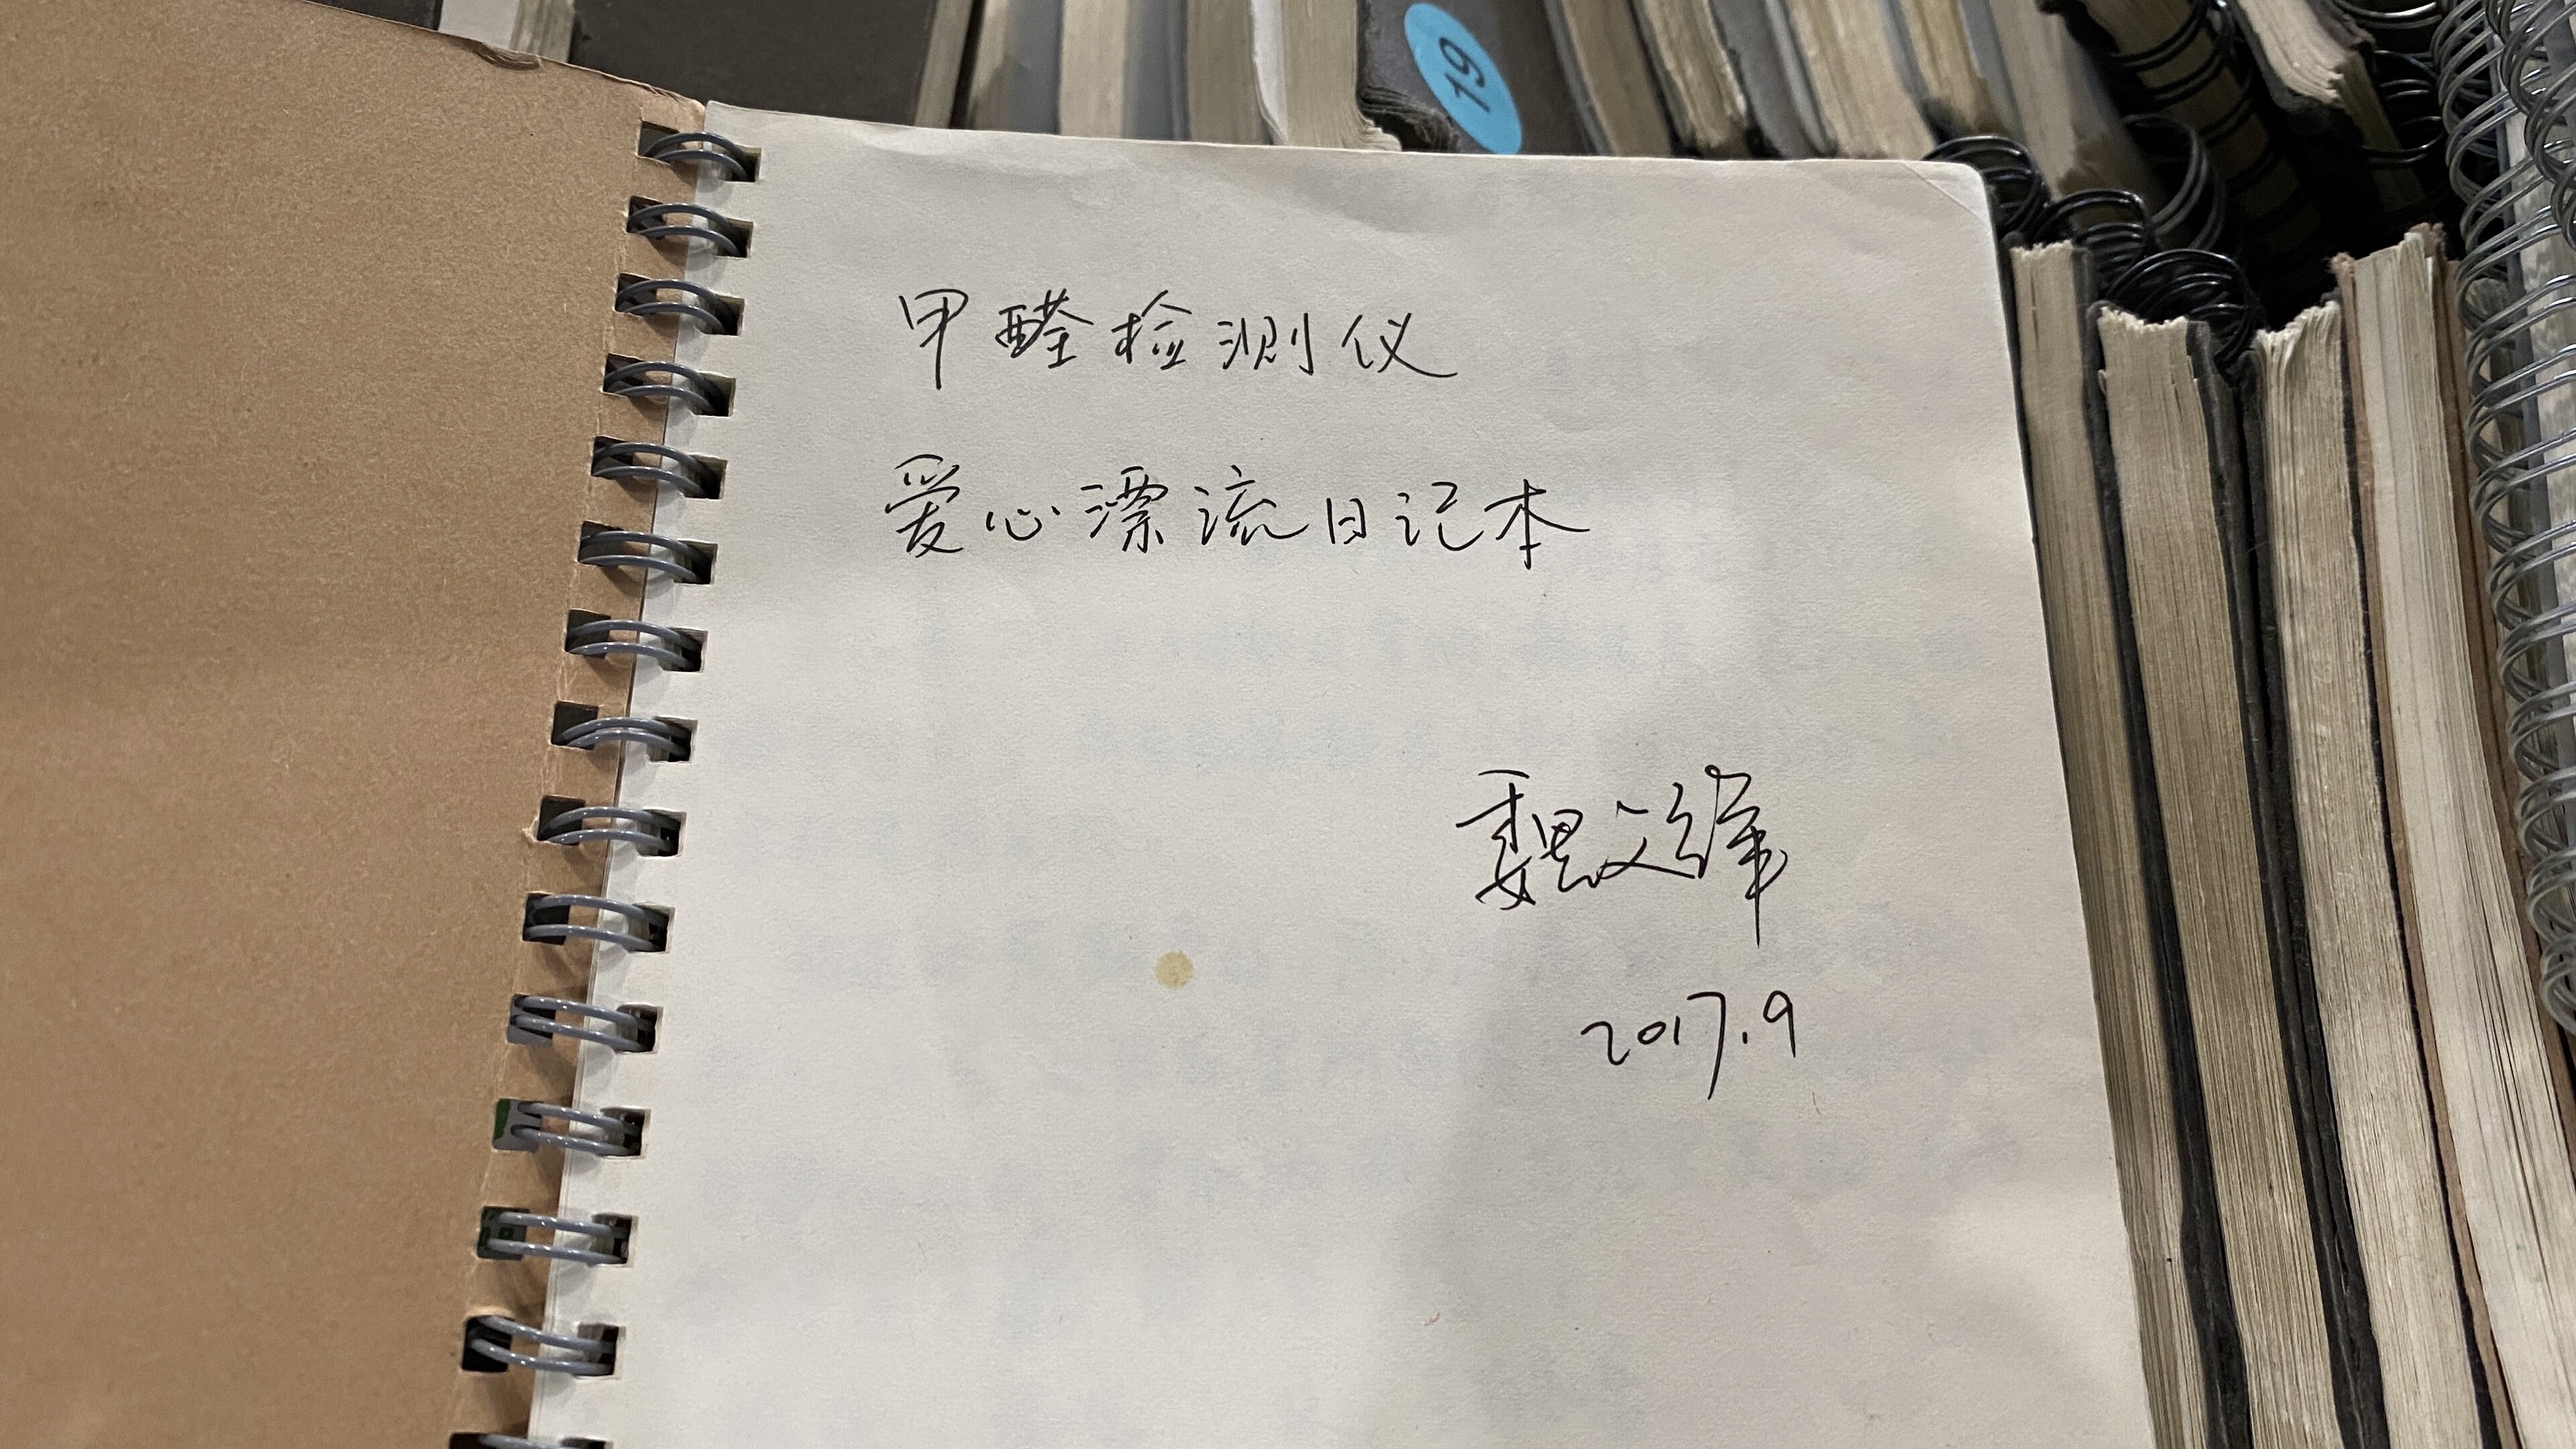 19
甲醛检测仪
爱心漂流日记本
魏文锋
2017.9